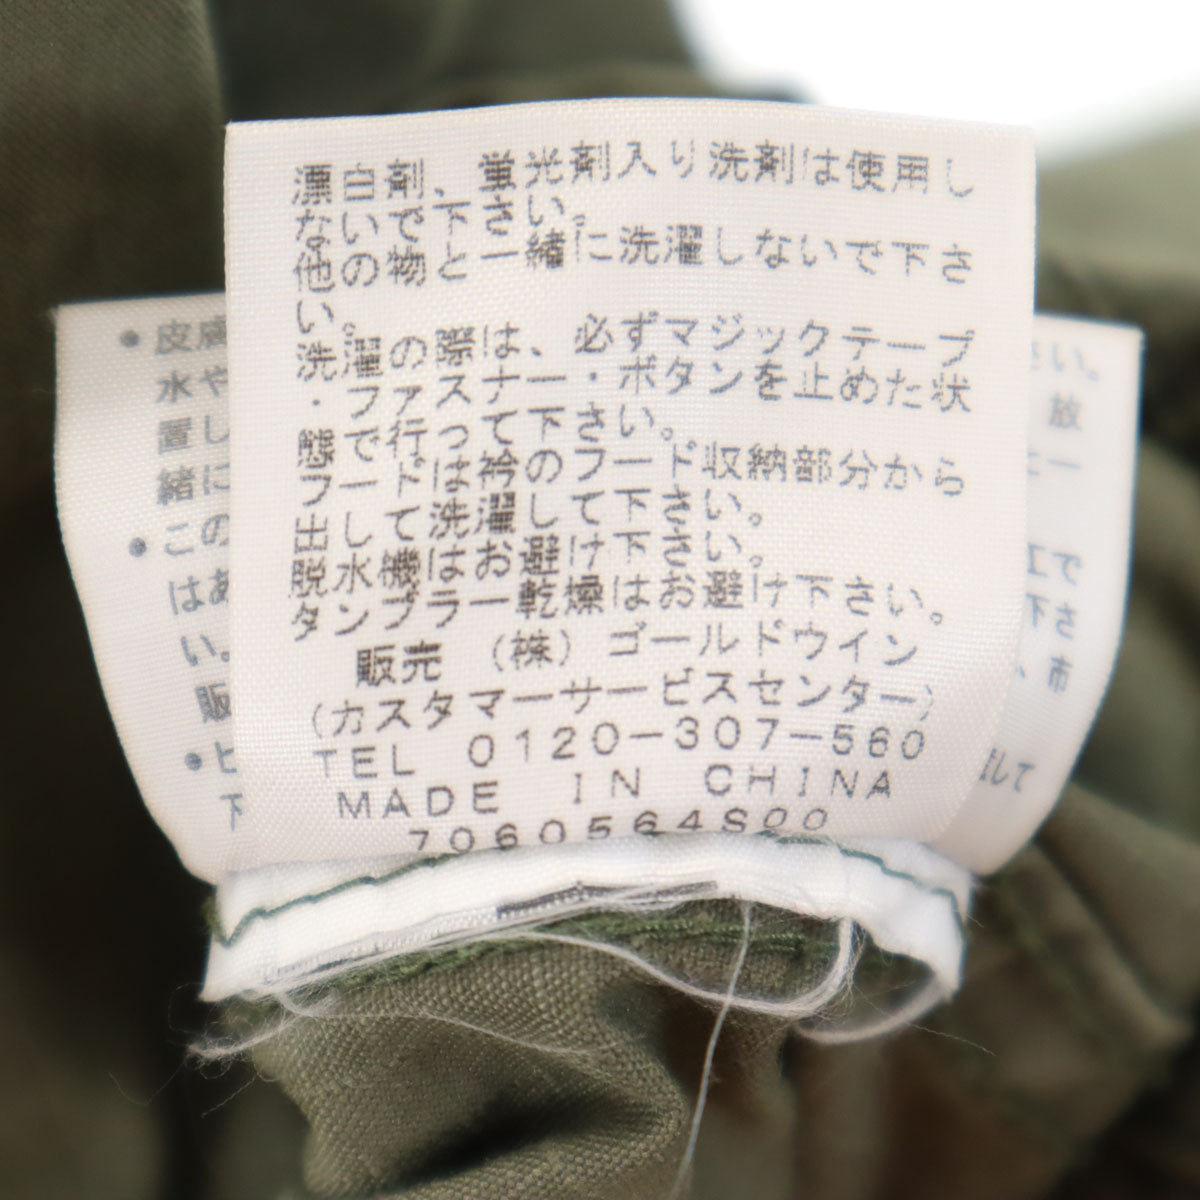 漂白剤、蛍光剤入り洗剤は使用し
ないで下さい。
他の物と一緒に洗濯しないで下さ
い。
洗濯の際は、必ずマジックテープ
・ファスナー・ボタンを止めた状
態で行って下さい。
フードは衿のフード収納部分から
出して洗濯して下さい。
脱水機はお避け下さい。
タンブラー乾燥はお避け下さい。
販売 (株)ゴールドウイン
(カスタマーサービスセンター)
TEL 0120-307-560
MADE IN CHINA
7060564S00
・皮膚
水や
置し
緒に
・この
はあ
い。
販
・ビ
下
さい。
放
と一
で
下さ
市
して